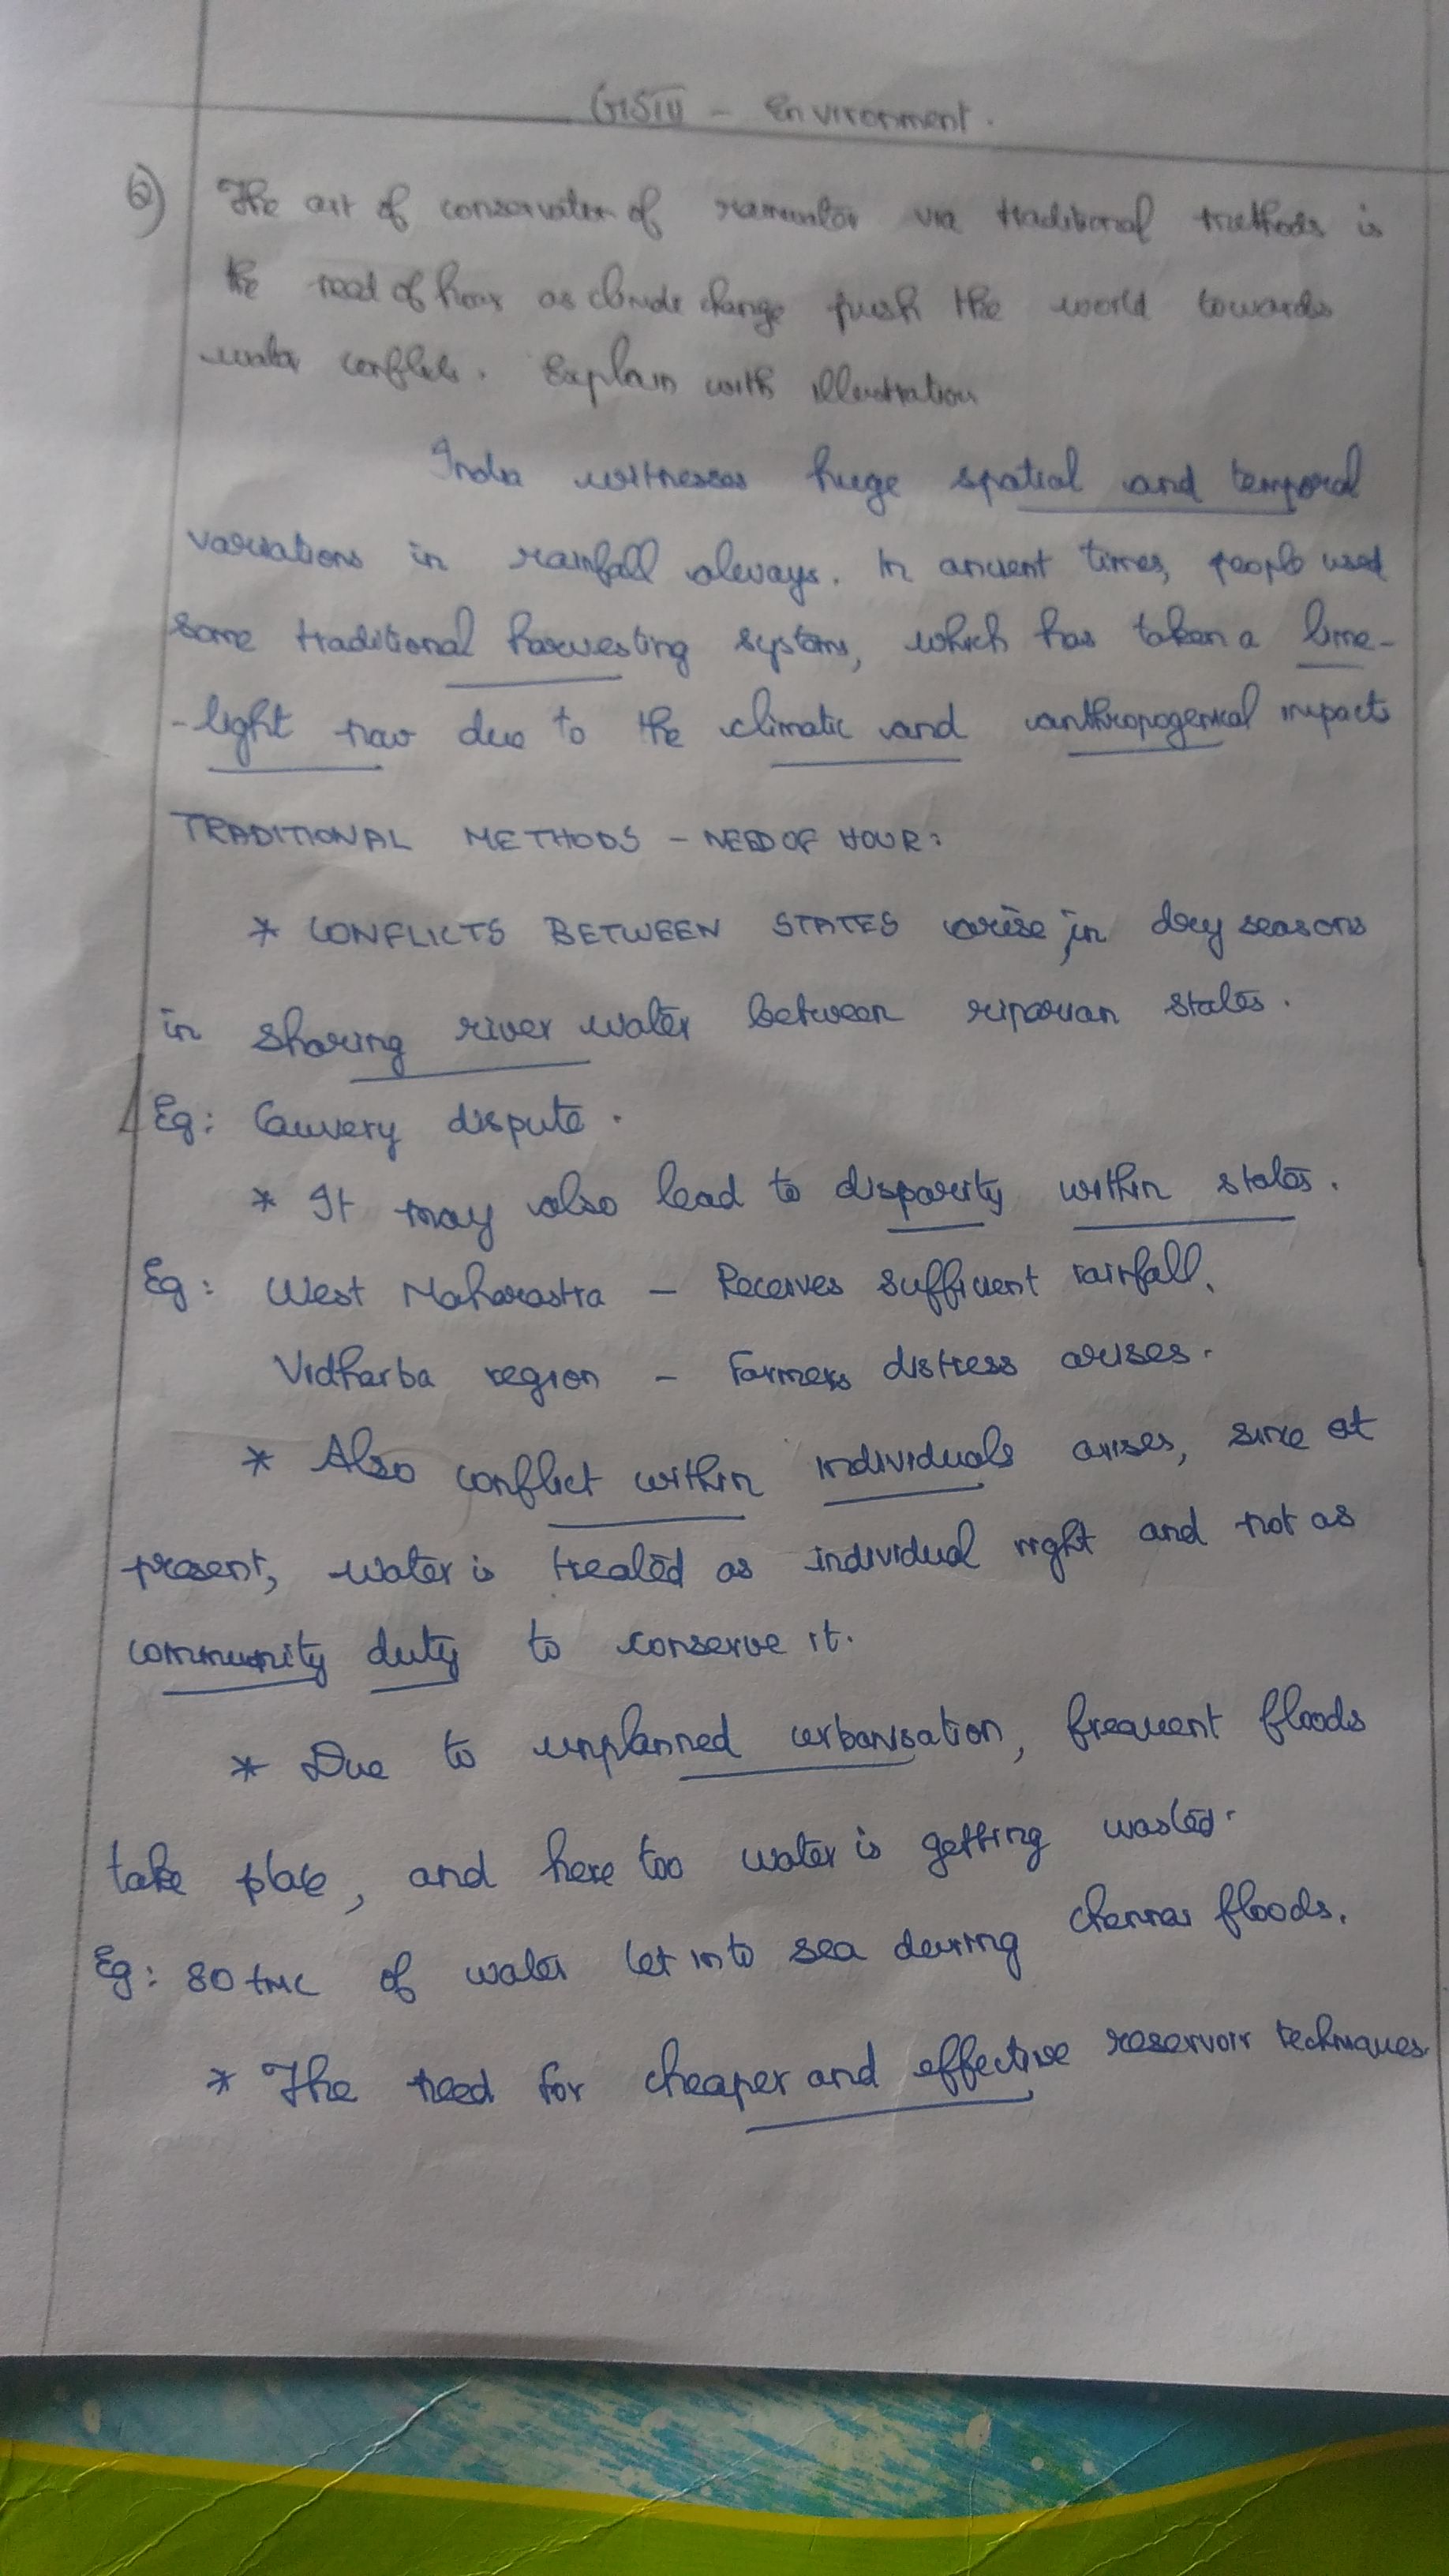 GSIII - Environment.
Q) The art of conservation of rainwater via traditional methods is
the need of hour as climate change push the world towards
water conflicts. Explain with illustration
India witnesses huge spatial and temporal
variations in rainfall always. In ancient times, people used
some traditional harvesting systems, which has taken a lime-
-light now due to the climatic and anthropogenical impacts
TRADITIONAL METHODS - NEED OF HOUR:
* CONFLICTS BETWEEN STATES arise, in dry seasons
in sharing river water between riparian states.
Eg: Cauvery dispute.
* It may also lead to disparity within states.
Eg: West Maharastra - Receives sufficient rainfall.
Vidharba region - Farmers distress arises.
* Also conflict within individuals arises, since at
present, water is treated as individual right and not as
community duty to conserve it.
* Due to unplanned urbanisation, frequent floods
take place, and here too water is getting wasted.
Eg: 80 tmc of water let into sea during chennai floods.
* The need for cheaper and effective reservoir techniques